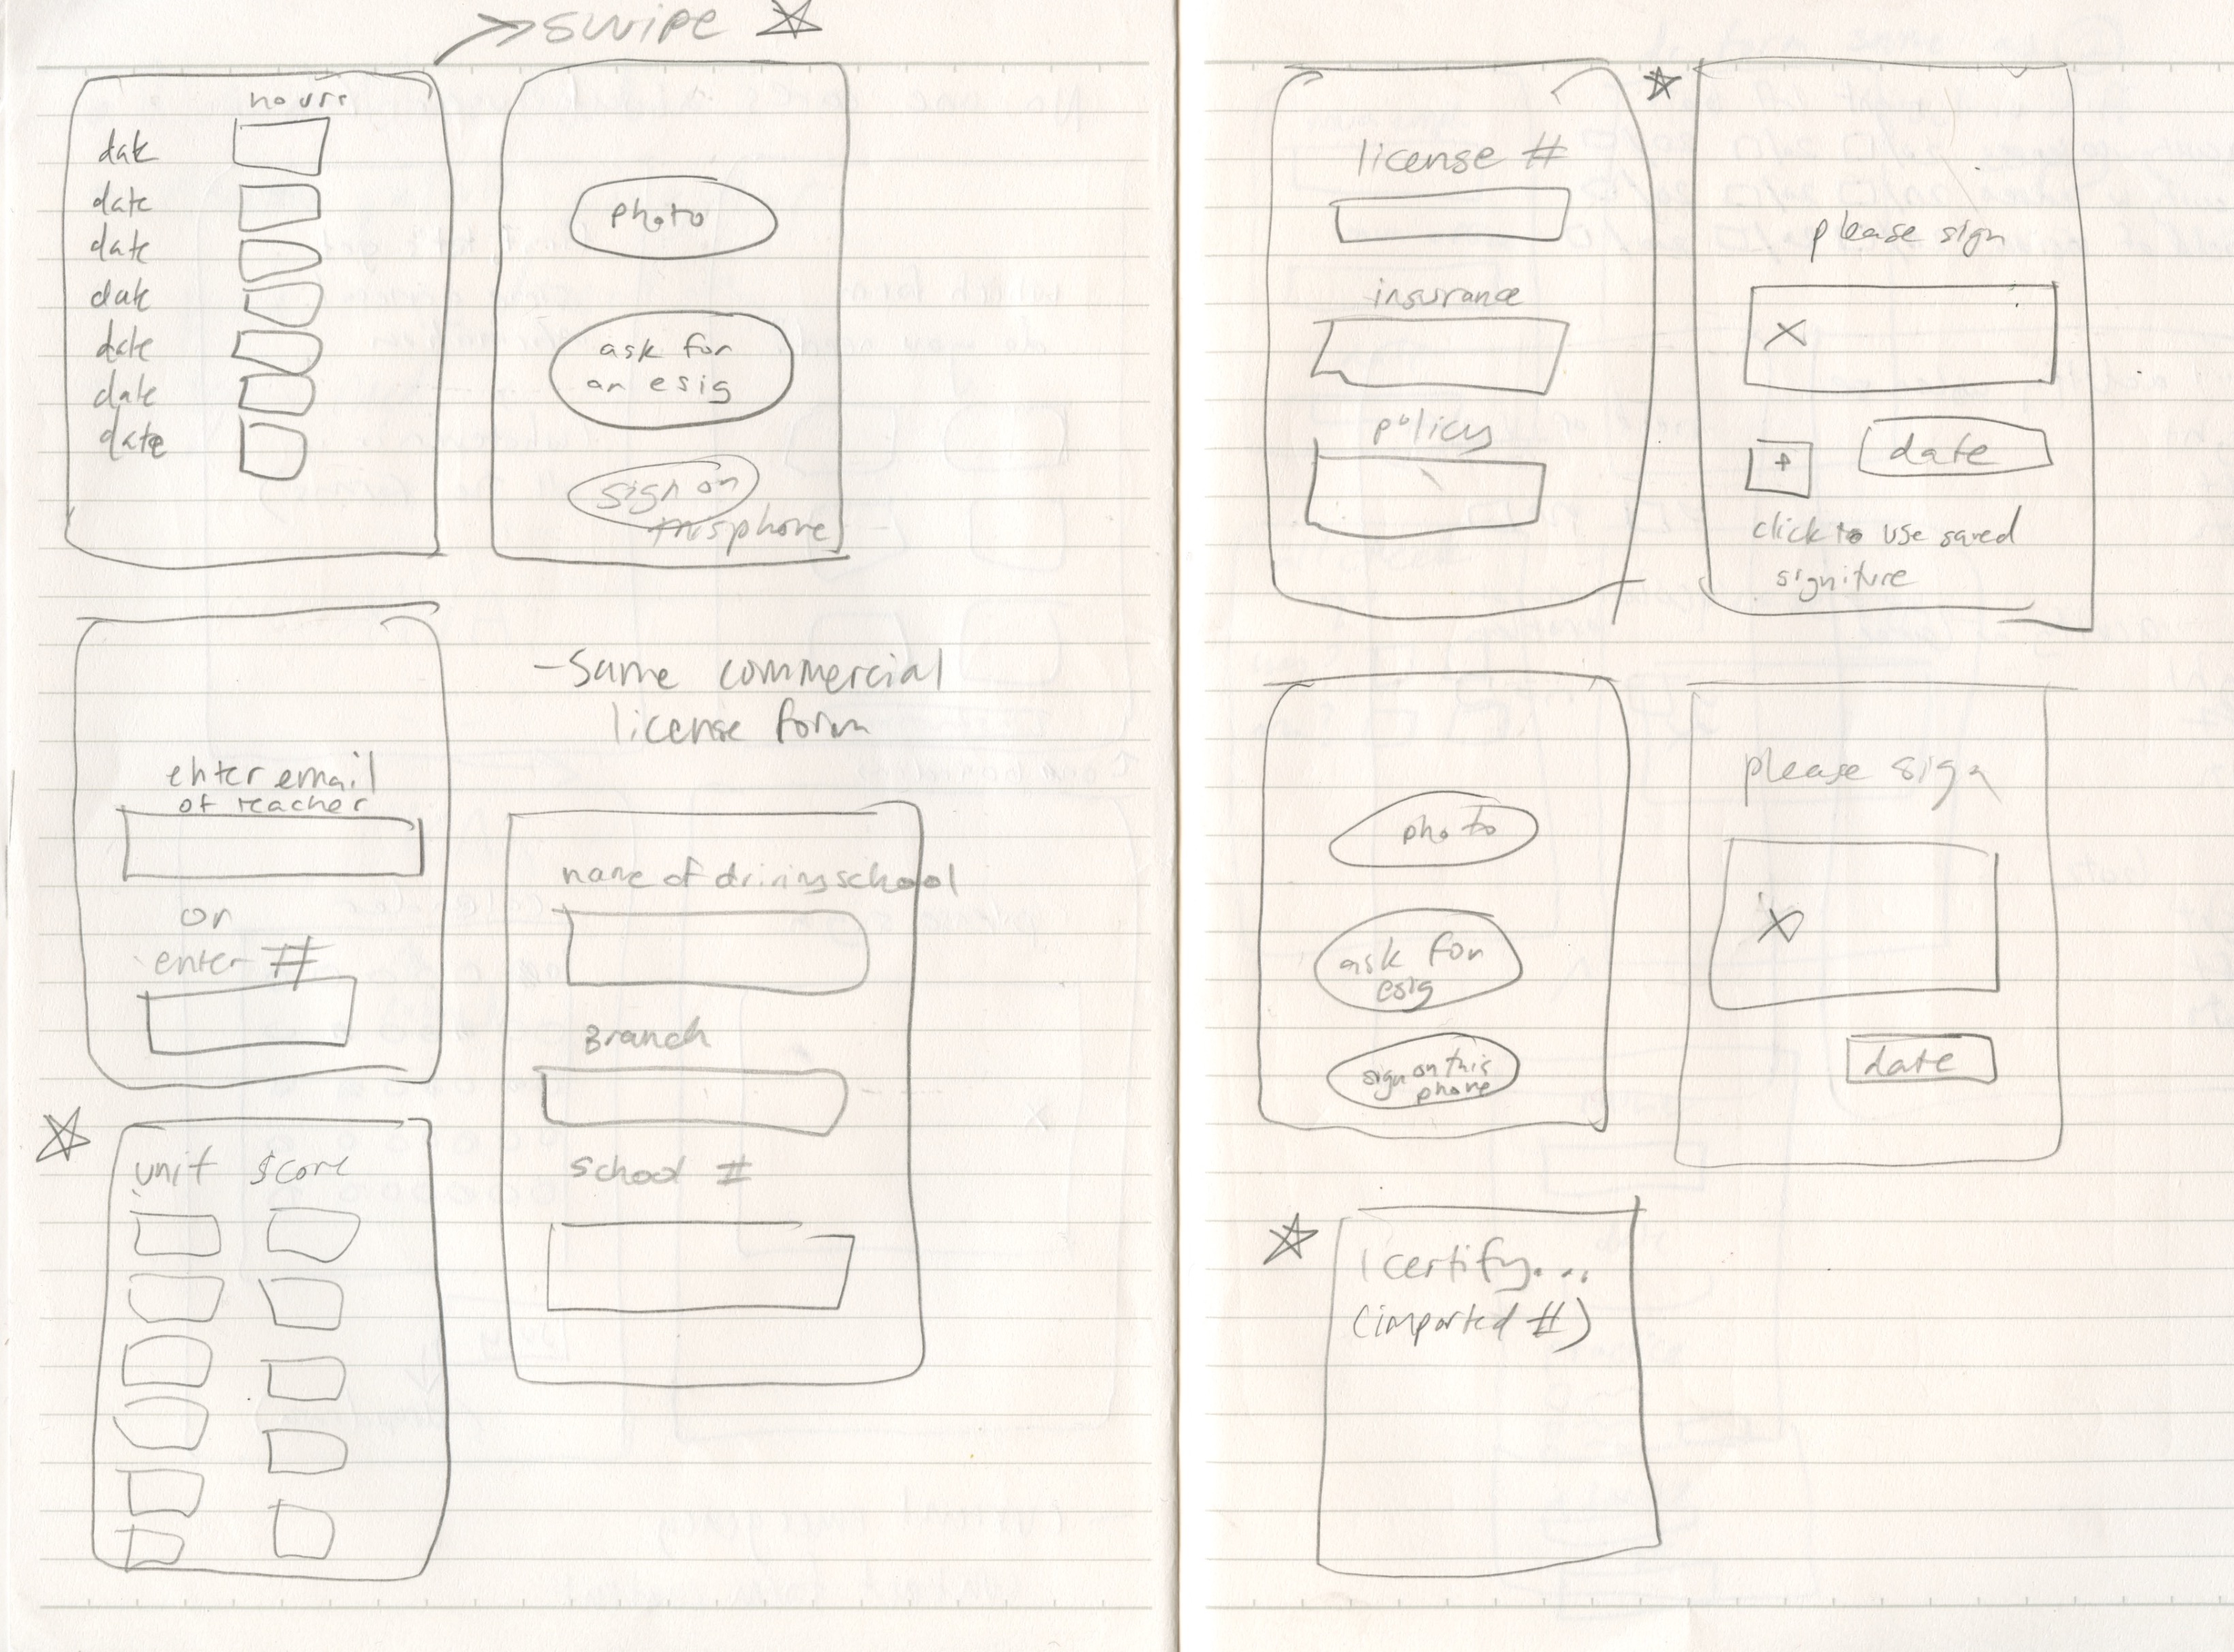 swipe
hours
date
date
date
date
date
date
date
photo
ask for
an esig
sign on
this phone
enter email
of teacher
or
enter #
-Same commercial
license form
name of driving school
Branch
School #
unit score
license #
insurance
policy
please sign
X
+
date
click to use saved
signiture
photo
ask for
esig
sign on this
phone
please sign
X
date
I certify...
(imported #)